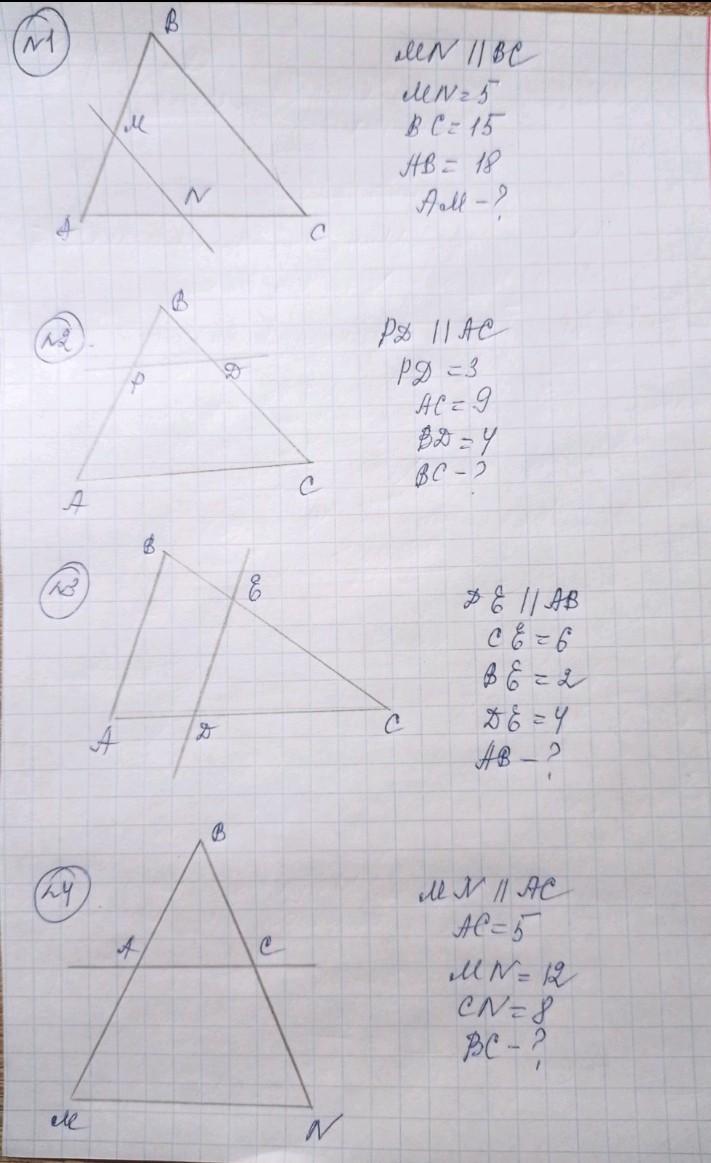 N1
B
M
N
A
C
MN || BC
MN = 5
BC = 15
AB = 18
AM - ?
N2
B
P
D
A
C
PD || AC
PD = 3
AC = 9
BD = 4
BC - ?
N3
B
E
A
D
C
DE || AB
CE = 6
BE = 2
DE = 4
AB - ?
N4
B
A
C
M
N
MN || AC
AC = 5
MN = 12
CN = 8
BC - ?